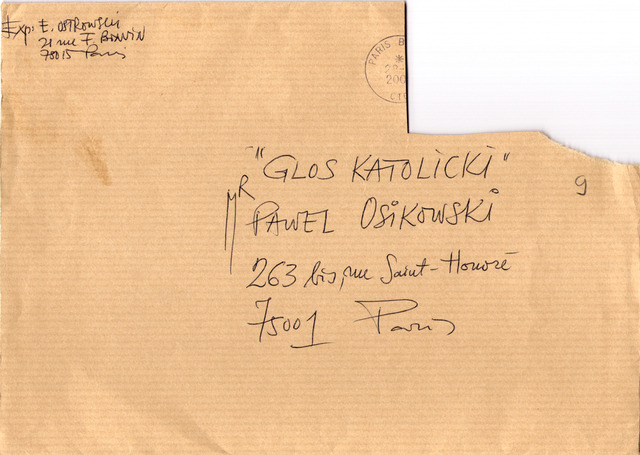 Exp: E. OSTROWSKI
21 rue F. BONVIN
75015 Paris
PARIS B
200
CT
"GLOS KATOLICKI"
MR PAWEL OSIKOWSKI
263 bis, rue Saint-Honoré
75001 Paris
9